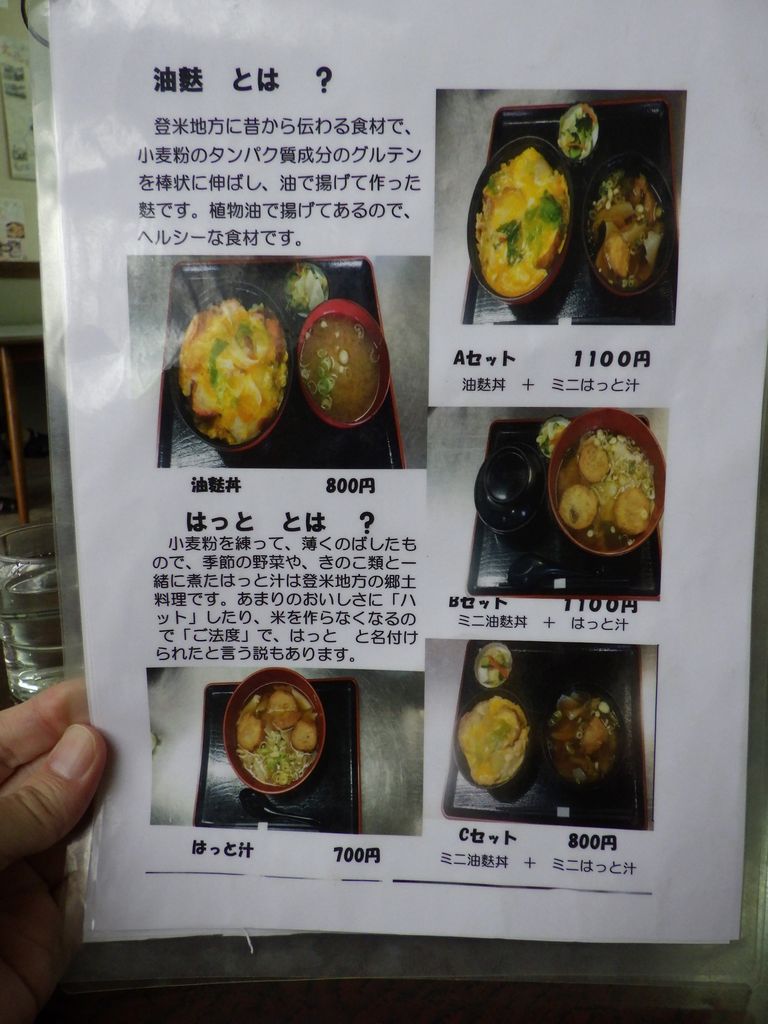 油麩 とは ?
登米地方に昔から伝わる食材で、
小麦粉のタンパク質成分のグルテン
を棒状に伸ばし、油で揚げて作った
麩です。植物油で揚げてあるので、
ヘルシーな食材です。
油麩丼 800円
はっと とは ?
小麦粉を練って、薄くのばしたも
ので、季節の野菜や、きのこ類と一
緒に煮たはっと汁は登米地方の郷土
料理です。あまりのおいしさに「ハ
ット」したり、米を作らなくなるの
で「ご法度」で、はっと と名付け
られたと言う説もあります。
はっと汁 700円
Aセット 1100円
油麩丼 + ミニはっと汁
Bセット 1100円
ミニ油麩丼 + はっと汁
Cセット 800円
ミニ油麩丼 + ミニはっと汁